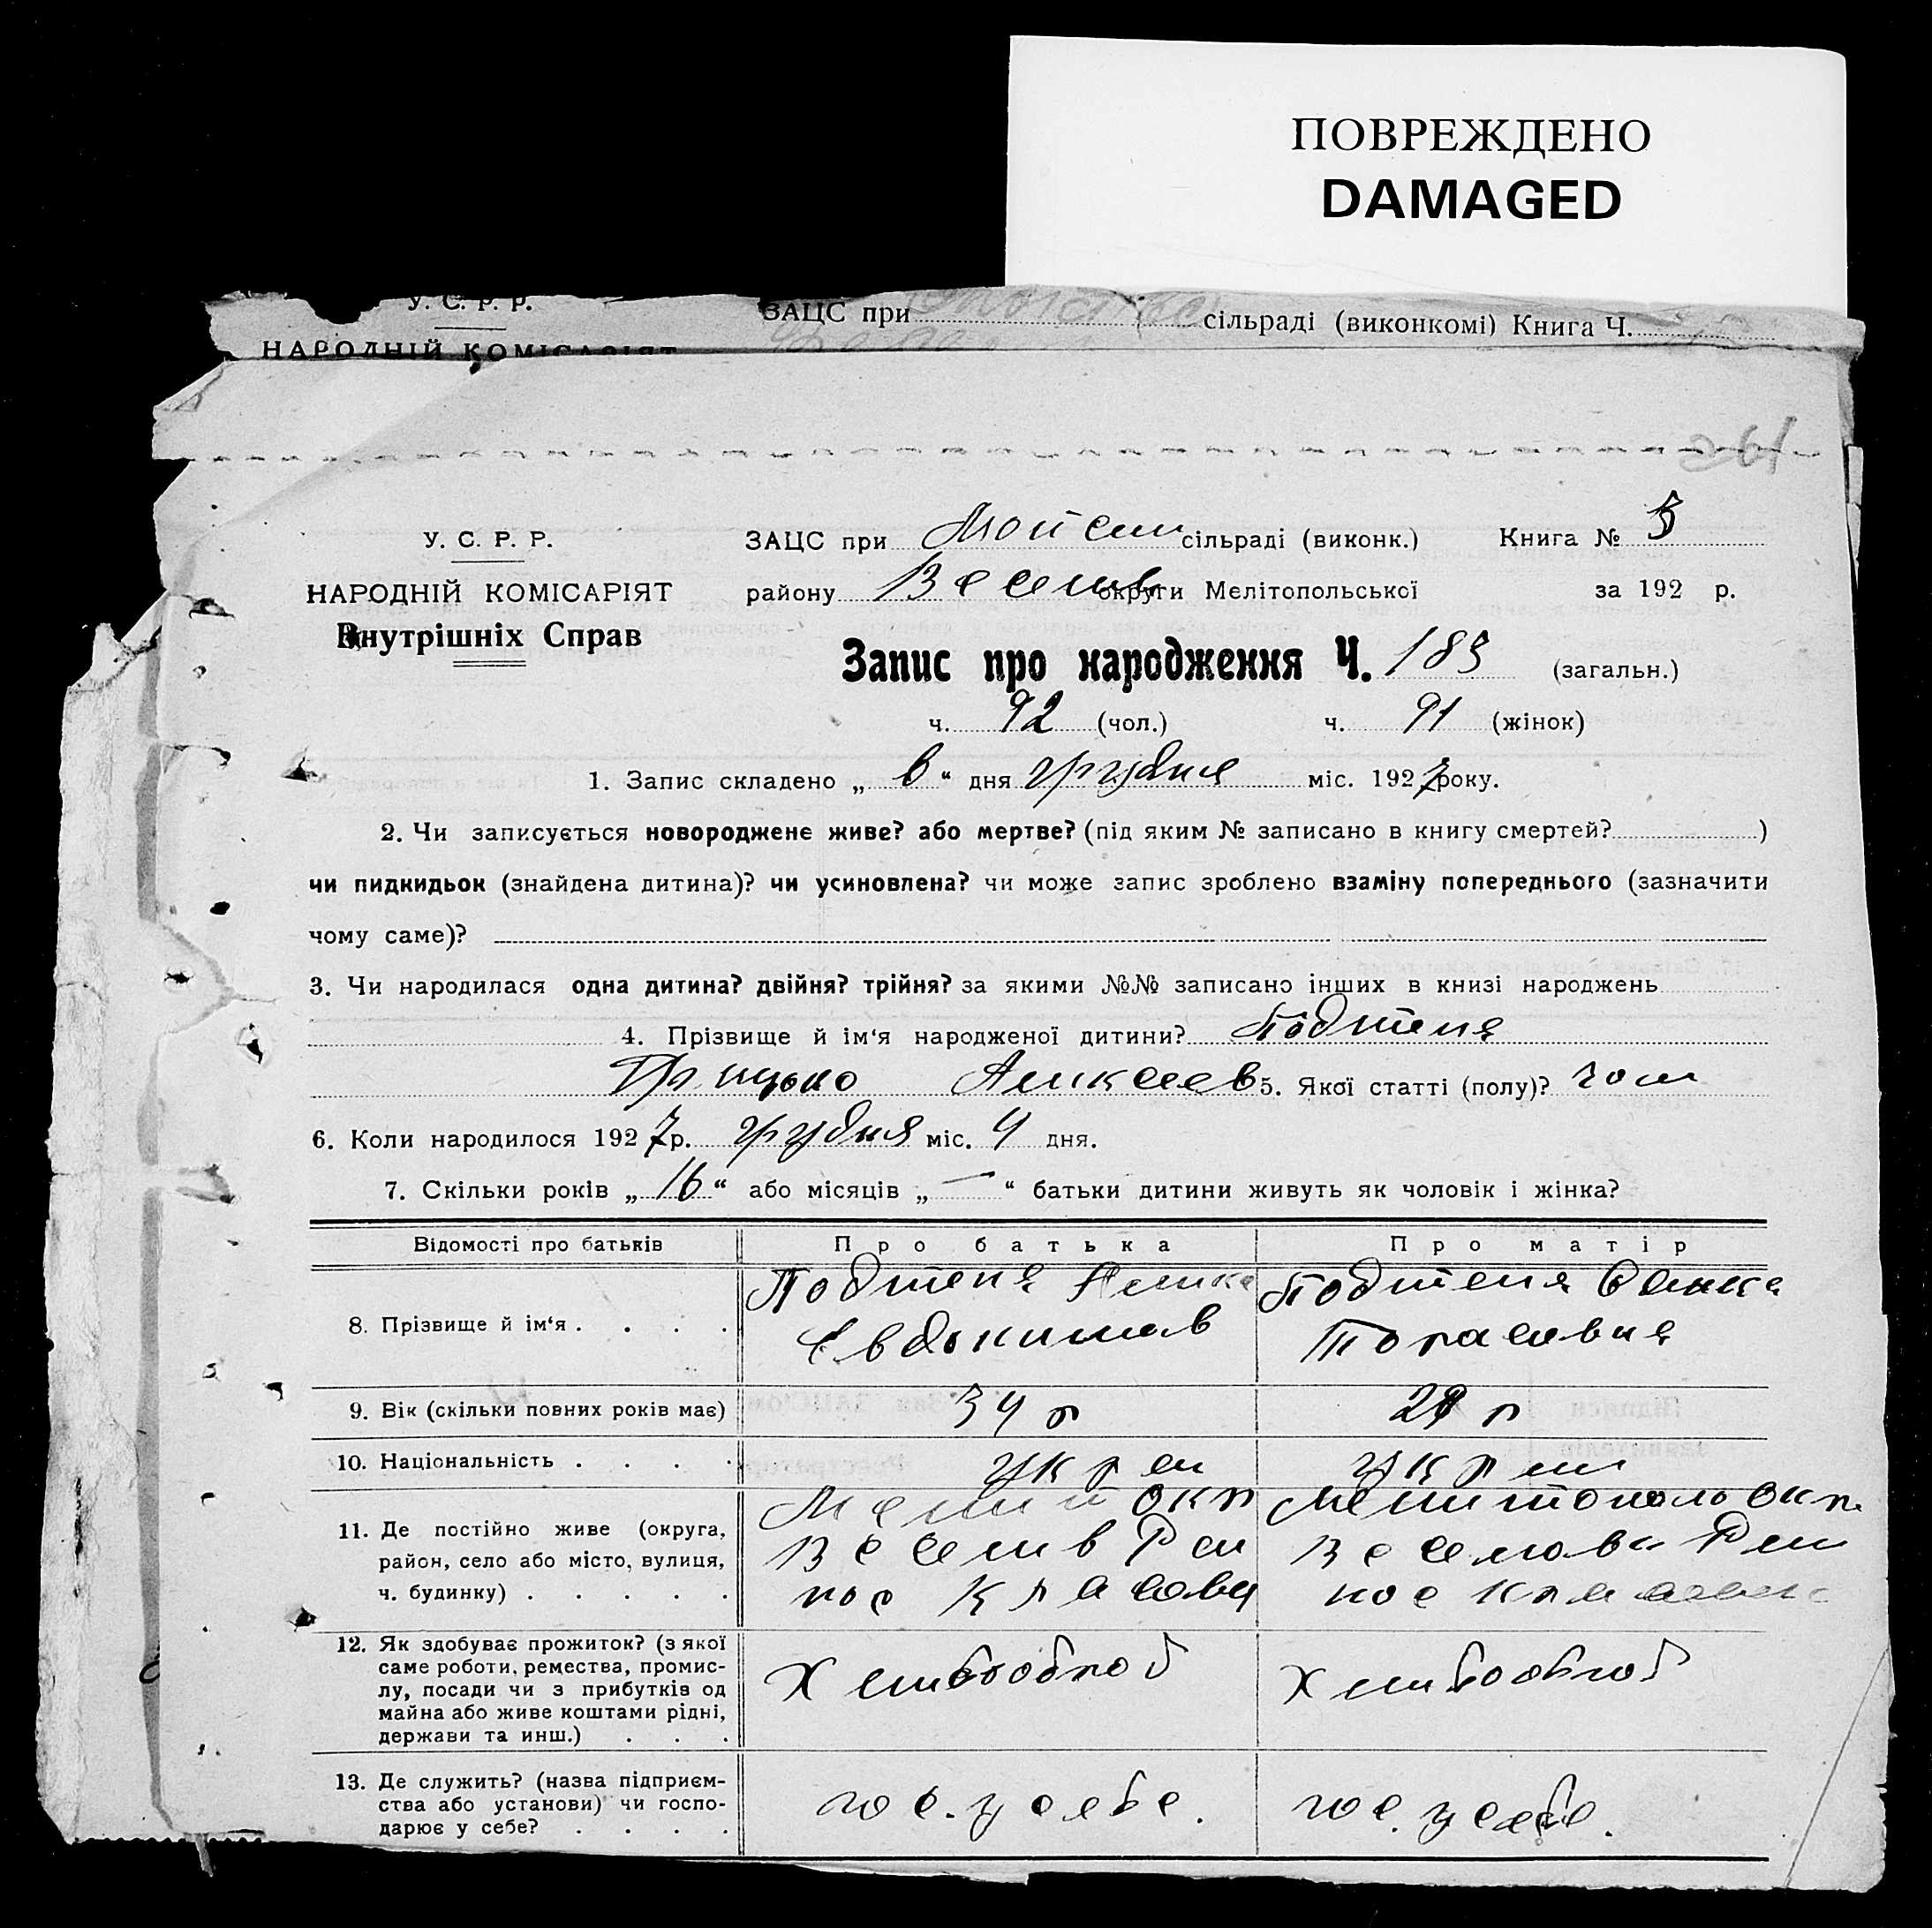 ПОВРЕЖДЕНО
DAMAGED
У. С. Р. Р.
ЗАЦС при сільраді (виконкомі) Книга Ч.
НАРОДНІЙ КОМІСАРІЯТ
У. С. Р. Р.
ЗАЦС при сільраді (виконк.) Книга № 3
НАРОДНІЙ КОМІСАРІЯТ
району Весели округи Мелітопольської за 192 р.
Внутрішніх Справ
Запис про народження Ч. 183 (загальн.)
ч. 92 (чол.) ч. 91 (жінок)
1. Запис складено „ 6 “ дня грудня міс. 1927 року.
2. Чи записується новороджене живе? або мертве? (під яким № записано в книгу смертей? )
чи пидкидьок (знайдена дитина)? чи усиновлена? чи може запис зроблено взаміну попереднього (зазначити
чому саме)?
3. Чи народилася одна дитина? двійня? трійня? за якими №№ записано інших в книзі народжень
4. Прізвище й ім‘я народженої дитини? Подтепя
Грицько Алексеев 5. Якої статті (полу)? чол
6. Коли народилося 1927 р. грудня міс. 4 дня.
7. Скільки років „ 16 “ або місяців „ — “ батьки дитини живуть як чоловік і жінка?
Відомості про батьків Про батька Про матір
8. Прізвище й ім‘я . . . . Подтепя Алексе Подтепя
Евдокимов Торасовня
9. Вік (скільки повних років має) 34 р 29 р
10. Національність . . . . укра укра
11. Де постійно живе (округа, Мелит окр Мелитополь окр.
район, село або місто, вулиця, Весел в Рай Веселова Рай
ч. будинку) . . . . . пос Красов пос
12. Як здобуває прожиток? (з якої
саме роботи, ремества, промис-
лу, посади чи з прибутків од
майна або живе коштами рідні,
держави та инш.) . . .
Хлибороб Хлибороб
13. Де служить? (назва підприєм-
ства або установи) чи госпо-
дарює у себе? . . . .
гос. у себе. гос. у себе.